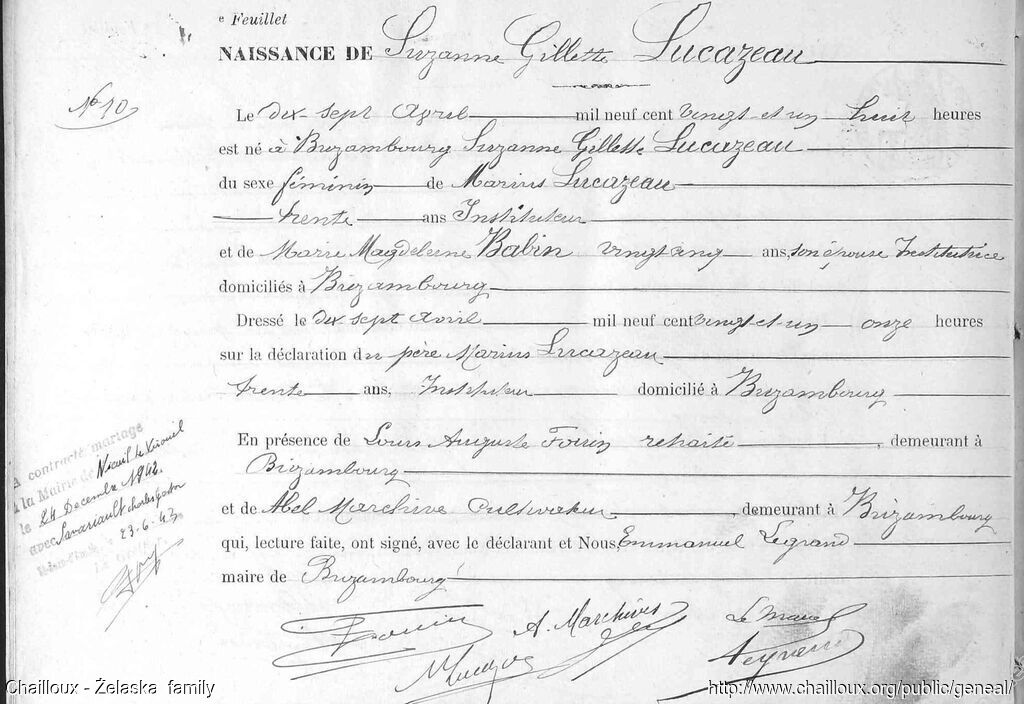 e Feuillet
NAISSANCE DE Suzanne Gillette Lucazeau
No 10
Le dix sept Avril mil neuf cent vingt et un huit heures
est né à Brizambourg Suzanne Gillette Lucazeau
du sexe féminin de Marius Lucazeau
trente ans Instituteur
et de Marie Magdeleine Babin vingt cinq ans, son épouse Institutrice
domiciliés à Brizambourg
Dressé le dix sept Avril mil neuf cent vingt et un onze heures
sur la déclaration du père Marius Lucazeau
trente ans, Instituteur domicilié à Brizambourg
En présence de Louis Auguste retraité, demeurant à
Brizambourg
et de Abel Marchive cultivateur, demeurant à Brizambourg
qui, lecture faite, ont signé, avec le déclarant et Nous, Emmanuel Legrand
maire de Brizambourg
A contracté mariage
à la Mairie de Nieul le Virouil
le 24 Decembre 1942
avec Savariault Charles Gaston
23.6.43
A. Marchive
Le Maire
Chailloux - Żelaska family
http://www.chailloux.org/public/geneal/